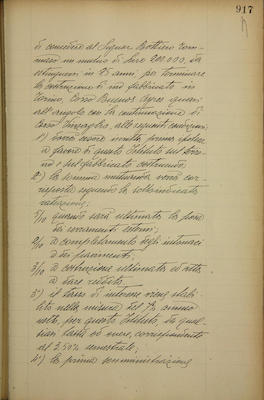 917
di concedere al Signor Bottino Tom-
maso un mutuo di Lire 200.000, da
estinguersi in 25 anni per terminare
la costruzione di un fabbricato in
Torino, Corso Buenos Ayres quasi
all'angolo con la continuazione di
Corso Vinzaglio, alle seguenti condizioni:
1°) verrà accesa prima ipoteca
a favore di questo Istituto sul terre-
no e sul fabbricato costruendo
2°) la somma mutuanda verrà cor-
risposta seguendo le sottoindicate
5/10 quando sarà ultimata la posa
dei cornicioni esterni;
2/10 a completamento degli intonaci
e dei pavimenti;
3/10 a costruzione ultimata ed atta
a dare reddito.
3°) il tasso di interesse viene stabi-
lito nella misura del 7% annuo
netto, per questo Istituto, da qual-
siasi tassa ed onere, corrispondente
al 3.50% semestrale;
4°) la prima somministrazione